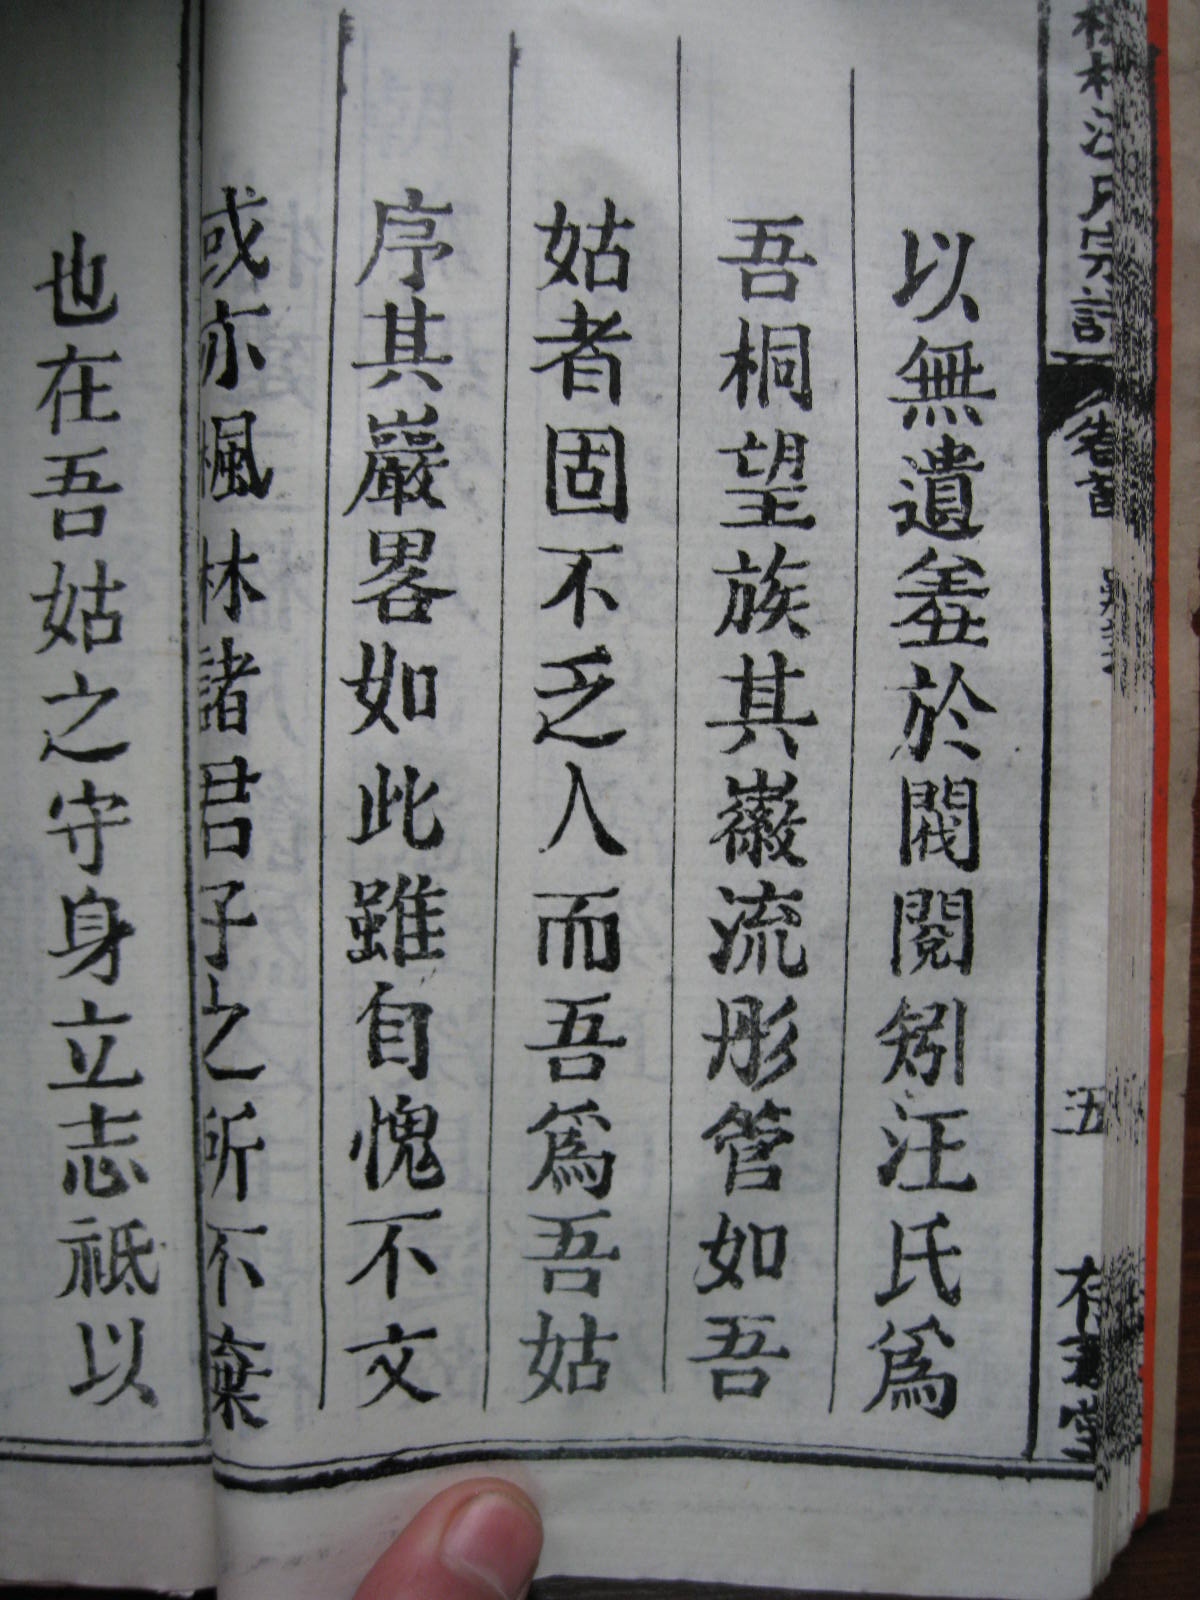 氏宗譜
卷首
五
以無遺羞於閥閱矧汪氏爲
吾桐望族其徽流彤管如吾
姑者固不乏人而吾爲吾姑
序其巖畧如此雖自愧不文
或亦楓林諸君子之所不棄
也在吾姑之守身立志祗以